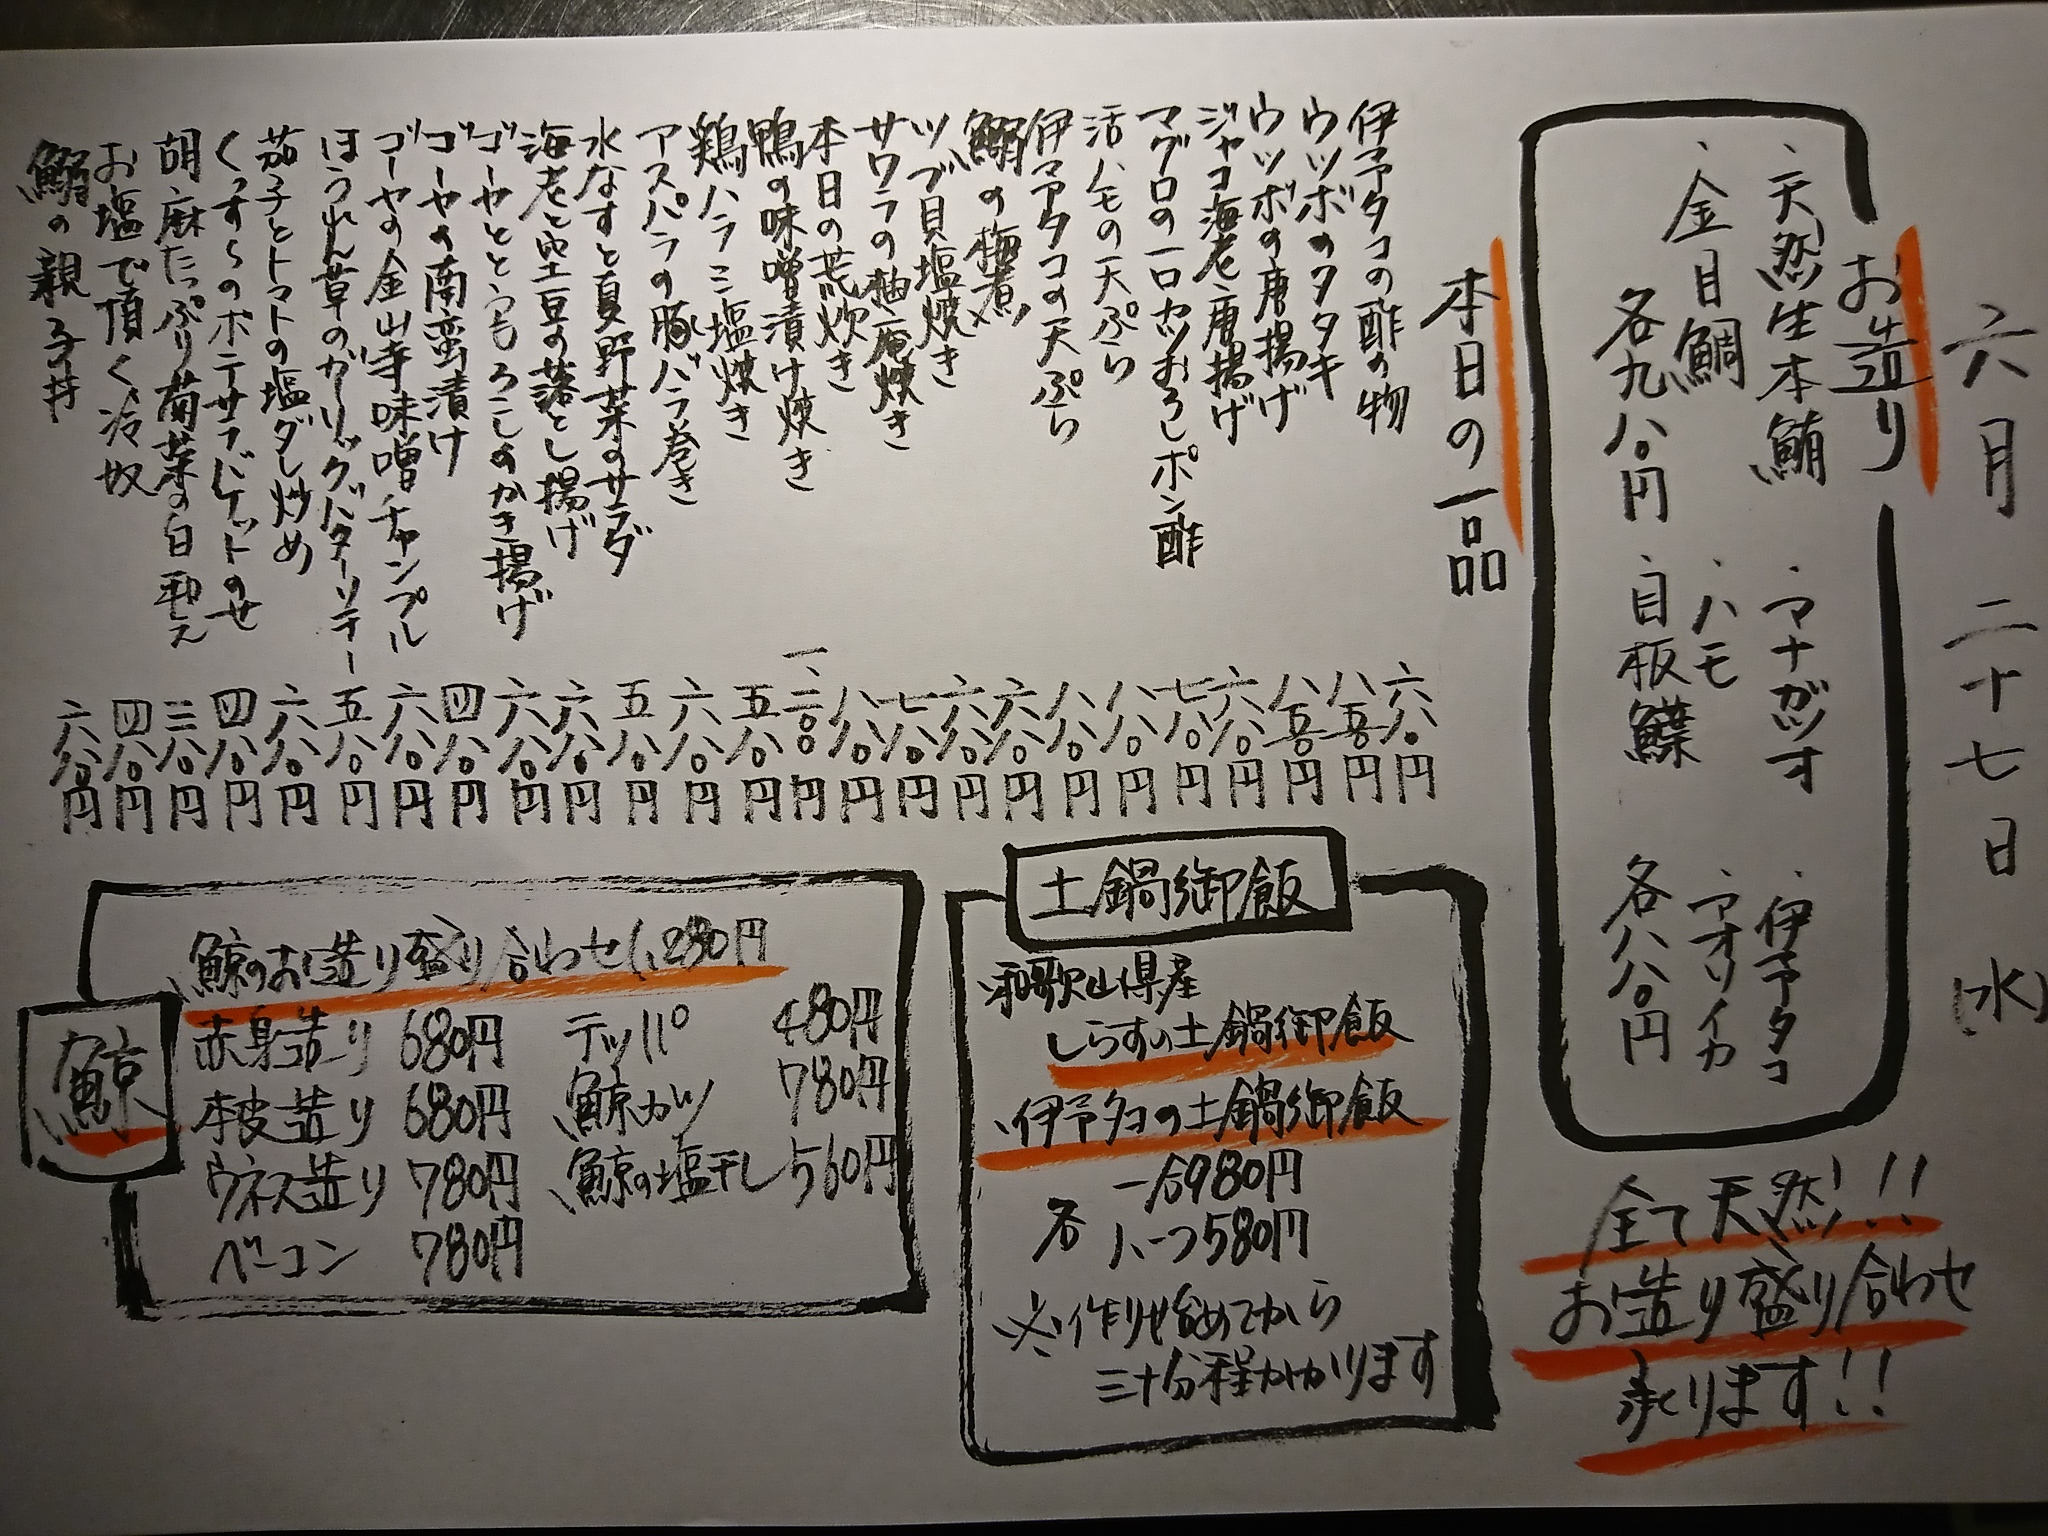 六月二十七日(水)
お造り
・天然生本鮪 ・マナガツオ ・伊予タコ
・金目鯛 ・ハモ ・アオリイカ
各九八〇円 ・目板鰈 各八八〇円
全て天然!!
お造り盛り合わせ
承ります!!
本日の一品
伊予タコの酢の物 六八〇円
ウツボのタタキ 八五〇円
ウツボの唐揚げ 八五〇円
ジャコ海老唐揚げ 六八〇円
マグロの一口カツおろしポン酢 七八〇円
活ハモの天ぷら 八八〇円
伊予タコの天ぷら 八八〇円
鰯の梅煮 六八〇円
ツブ貝塩焼き 六八〇円
サワラの柚庵焼き 七八〇円
本日の荒炊き 八八〇円
鴨の味噌漬け焼き 一、二〇〇円
鶏ハラミ塩焼き 五八〇円
アスパラの豚バラ巻き 六八〇円
水なすと夏野菜のサラダ 五八〇円
海老と空豆の落とし揚げ 六八〇円
ゴーヤととうもろこしのかき揚げ 六八〇円
ゴーヤの南蛮漬け 四八〇円
ゴーヤの金山寺味噌チャンプル 六八〇円
ほうれん草のガーリックバターソテー 五八〇円
茄子とトマトの塩ダレ炒め 六八〇円
くっすらのポテサラバケットのせ 四八〇円
胡麻たっぷり菊菜の白和え 三八〇円
お塩で頂く冷奴 四八〇円
鰯の親子丼 六八〇円
土鍋御飯
・和歌山県産
しらすの土鍋御飯
・伊予タコの土鍋御飯
一合980円
各 ハーフ580円
※作り始めてから
三十分程かかります
鯨
・鯨のお造り盛り合わせ1,280円
赤身造り 680円 テッパ 480円
本皮造り 680円 鯨カツ 780円
ウネス造り 780円 鯨の塩干し 560円
ベーコン 780円